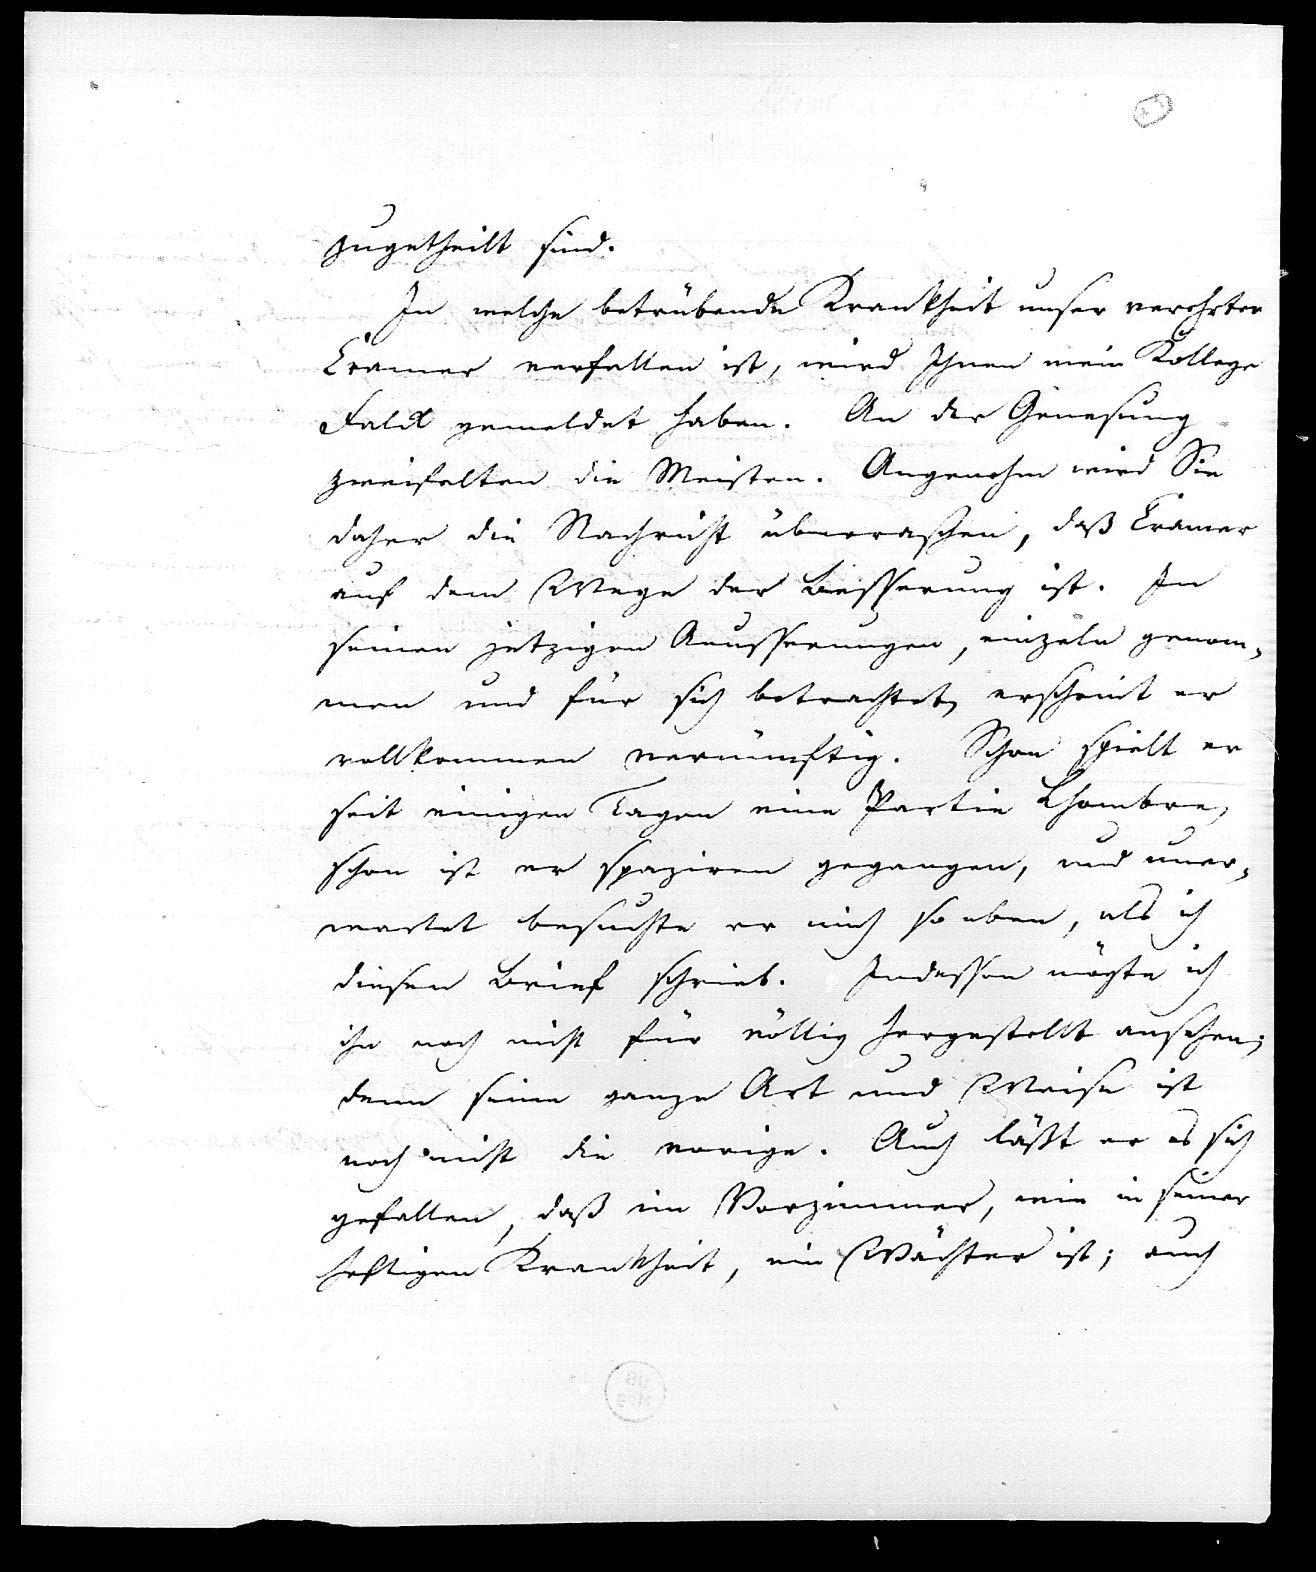 zugetheilt sind.
In welche betrübende Krankheit unser verehrter
Cramer verfallen ist, wird Ihnen mein Kollege
Falck gemeldet haben. An der Genesung
zweifelten die Meisten. Angenehm wird Sie
daher die Nachricht überraschen, daß Cramer
auf dem Wege der Besserung ist. In
seinen jetzigen Aeusserungen, einzeln genom-
men und für sich betrachtet, erscheint er
vollkommen vernünftig. Schon spielt er
seit einigen Tagen eine Partie Lhombre,
schon ist er spaziren gegangen, und uner-
wartet besuchte er mich so eben, als ich
diesen Brief schrieb. Indessen mögte ich
ihn noch nicht für völlig hergestellt ansehen;
denn seine ganze Art und Weise ist
noch nicht die vorige. Auch läßt er es sich
gefallen, daß im Vorzimmer, wie in seiner
heftigen Krankheit, ein Wächter ist; auch